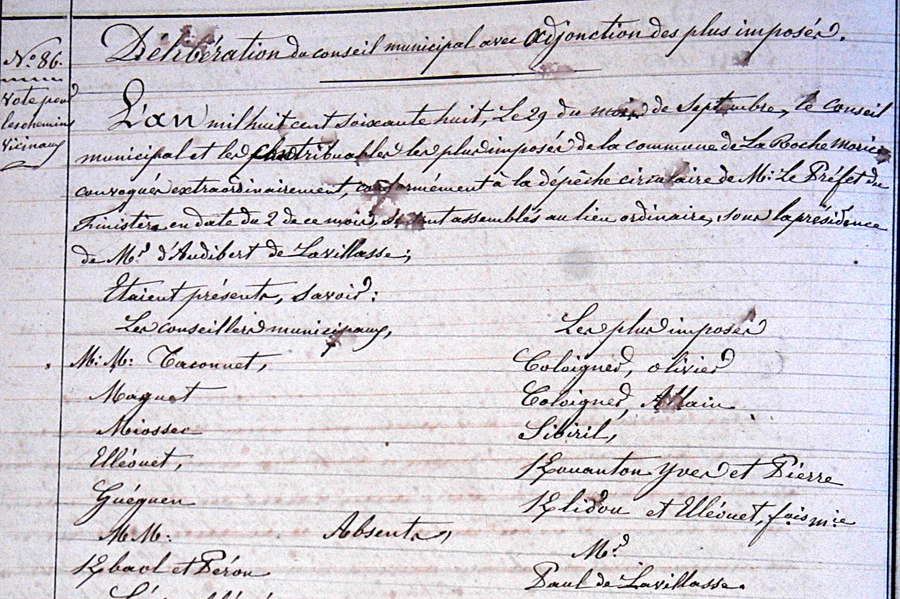 Délibération du conseil municipal avec adjonction des plus imposés.
N.o 86.
Vote pour
les chemins
Vicinaux
L'an mil huit cent soixante huit, Le 29 du mois de Septembre, le conseil
municipal et les contribuables les plus imposés de la commune de La Roche Morice
convoqués extraordinairement, conformément à la dépêche circulaire de Mr. Le Préfet du
Finistère, en date du 2 de ce mois, s'étant assemblés au lieu ordinaire, sous la présidence
de Mr. d'Audibert de Lavillasse;
Etaient présents, savoir:
Les conseillers municipaux,
M.M. Taconnet,
Maguet
Miossec
Elléouet,
Guéguen
M M: Absents,
Kbaol et Péron
Les plus imposés
Coloigner, olivier
Coloigner, Allain
Sibiril,
Kouanton Yves et Pierre
Klidou et Elléouet, fois mie
Mr
Paul de Lavillasse.